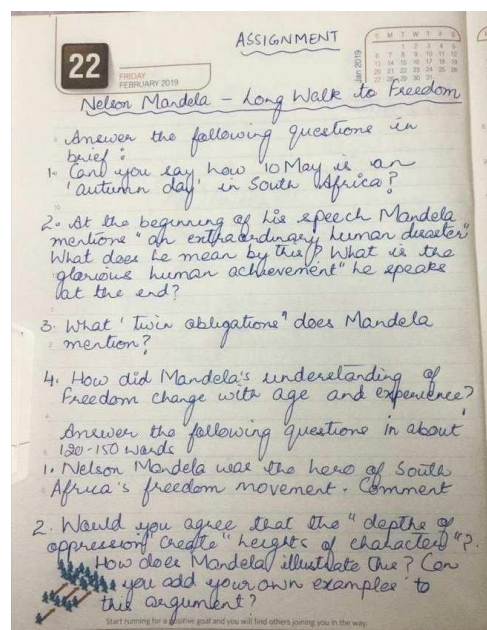 ASSIGNMENT
22
FRIDAY
FEBRUARY 2019
Jan 2019
S M T W T F S
1 2 3 4 5
6 7 8 9 10 11 12
13 14 15 16 17 18 19
20 21 22 23 24 25 26
27 28 29 30 31
Nelson Mandela - Long Walk to Freedom
Answer the following questions in
brief:
1. Can you say how 10 May is an
'autumn day' in South Africa?
2. At the beginning of his speech Mandela
mentions "an extraordinary human disaster"
What does he mean by this? What is the
glorious human achievement" he speaks
at the end?
3. What 'twin obligations" does Mandela
mention?
4. How did Mandela's understanding of
Freedom change with age and experience?
Answer the following questions in about
120-150 words
1. Nelson Mandela was the hero of South
Africa's freedom movement. Comment
2. Would you agree that the "depths of
oppression" create "heights of character"?
How does Mandela illustrate this? Can
you add your own examples to
this argument?
Start running for a positive goal and you will find others joining you in the way.